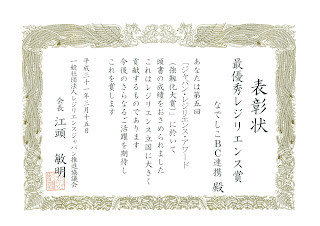 表彰状
最優秀レジリエンス賞
なでしこBC連携 殿
あなたは第五回
「ジャパン・レジリエンス・アワード
（強靱化大賞）」に於いて
頭書の成績をおさめられました
これはレジリエンス立国に大きく
貢献するものであります
今後のさらなるご活躍を期待し
これを賞します
平成三十一年三月十五日
一般社団法人レジリエンスジャパン推進協議会
会長 江頭 敏明